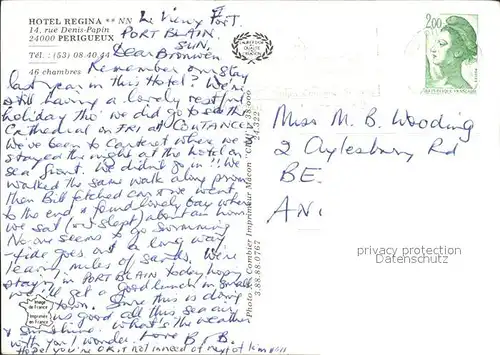 HOTEL REGINA ** NN
14, rue Denis-Papin
24000 PERIGUEUX
Tél.: (53) 08.40.44
46 chambres
Le Vieux Port.
PORT BLAIN.
SUN.
Dear Bronwen
Remember our stay
last year in this Hotel? We're
still having a lovely restful
holiday tho' we did go to see the
Cathedral on FRI at COUTANCE
We've been to Carteret where we
stayed the night at the hotel on
sea front. We didn't go in!! We
walked the same walk along prom
then Bill fetched car & we went
to the end & found lovely bay where
we sat (or slept) about an hour
No-one seems to go swimming
- tide goes out a long way
leaving miles of sands. We're
stay'g in PORT BLAIN today hope
we'll get a good lunch in small
town. Sure this is doing
us good all this sea air
& sunshine. What's the weather
with you I wonder. Love B & B.
Hope you're O.K. & not in need of
Image
de France
Imprimée
en France
Photo Combier Imprimeur Macon "CIM"
3.88.88.0767
24.322
2,00
Miss M. B. Wooding
2 Aylesbury Rd
BE.
AN.
privacy protection
ansichtskarten-lexikon.de